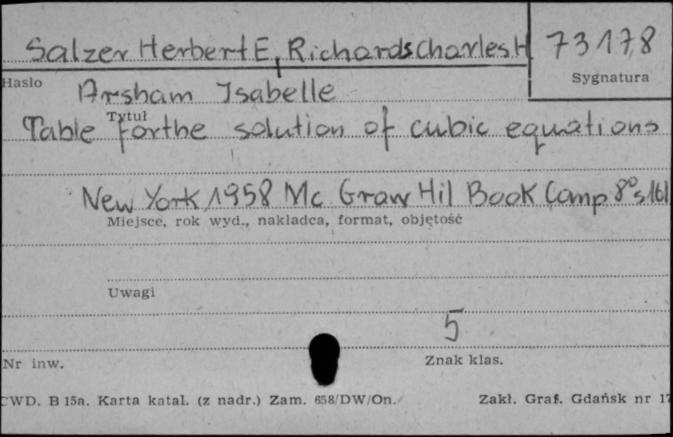 Salzer Herbert E, Richards Charles H 73178
Hasło Sygnatura
Arsham Isabelle
Tytuł
Table for the solution of cubic equations
New York, 1958 Mc Graw Hil Book Comp 8° s 161
Miejsce, rok wyd., nakładca, format, objętość
Uwagi
5
Nr inw. Znak klas.
CWD. B 15a. Karta katal. (z nadr.) Zam. 658/DW/On. Zakł. Graf. Gdańsk nr 17